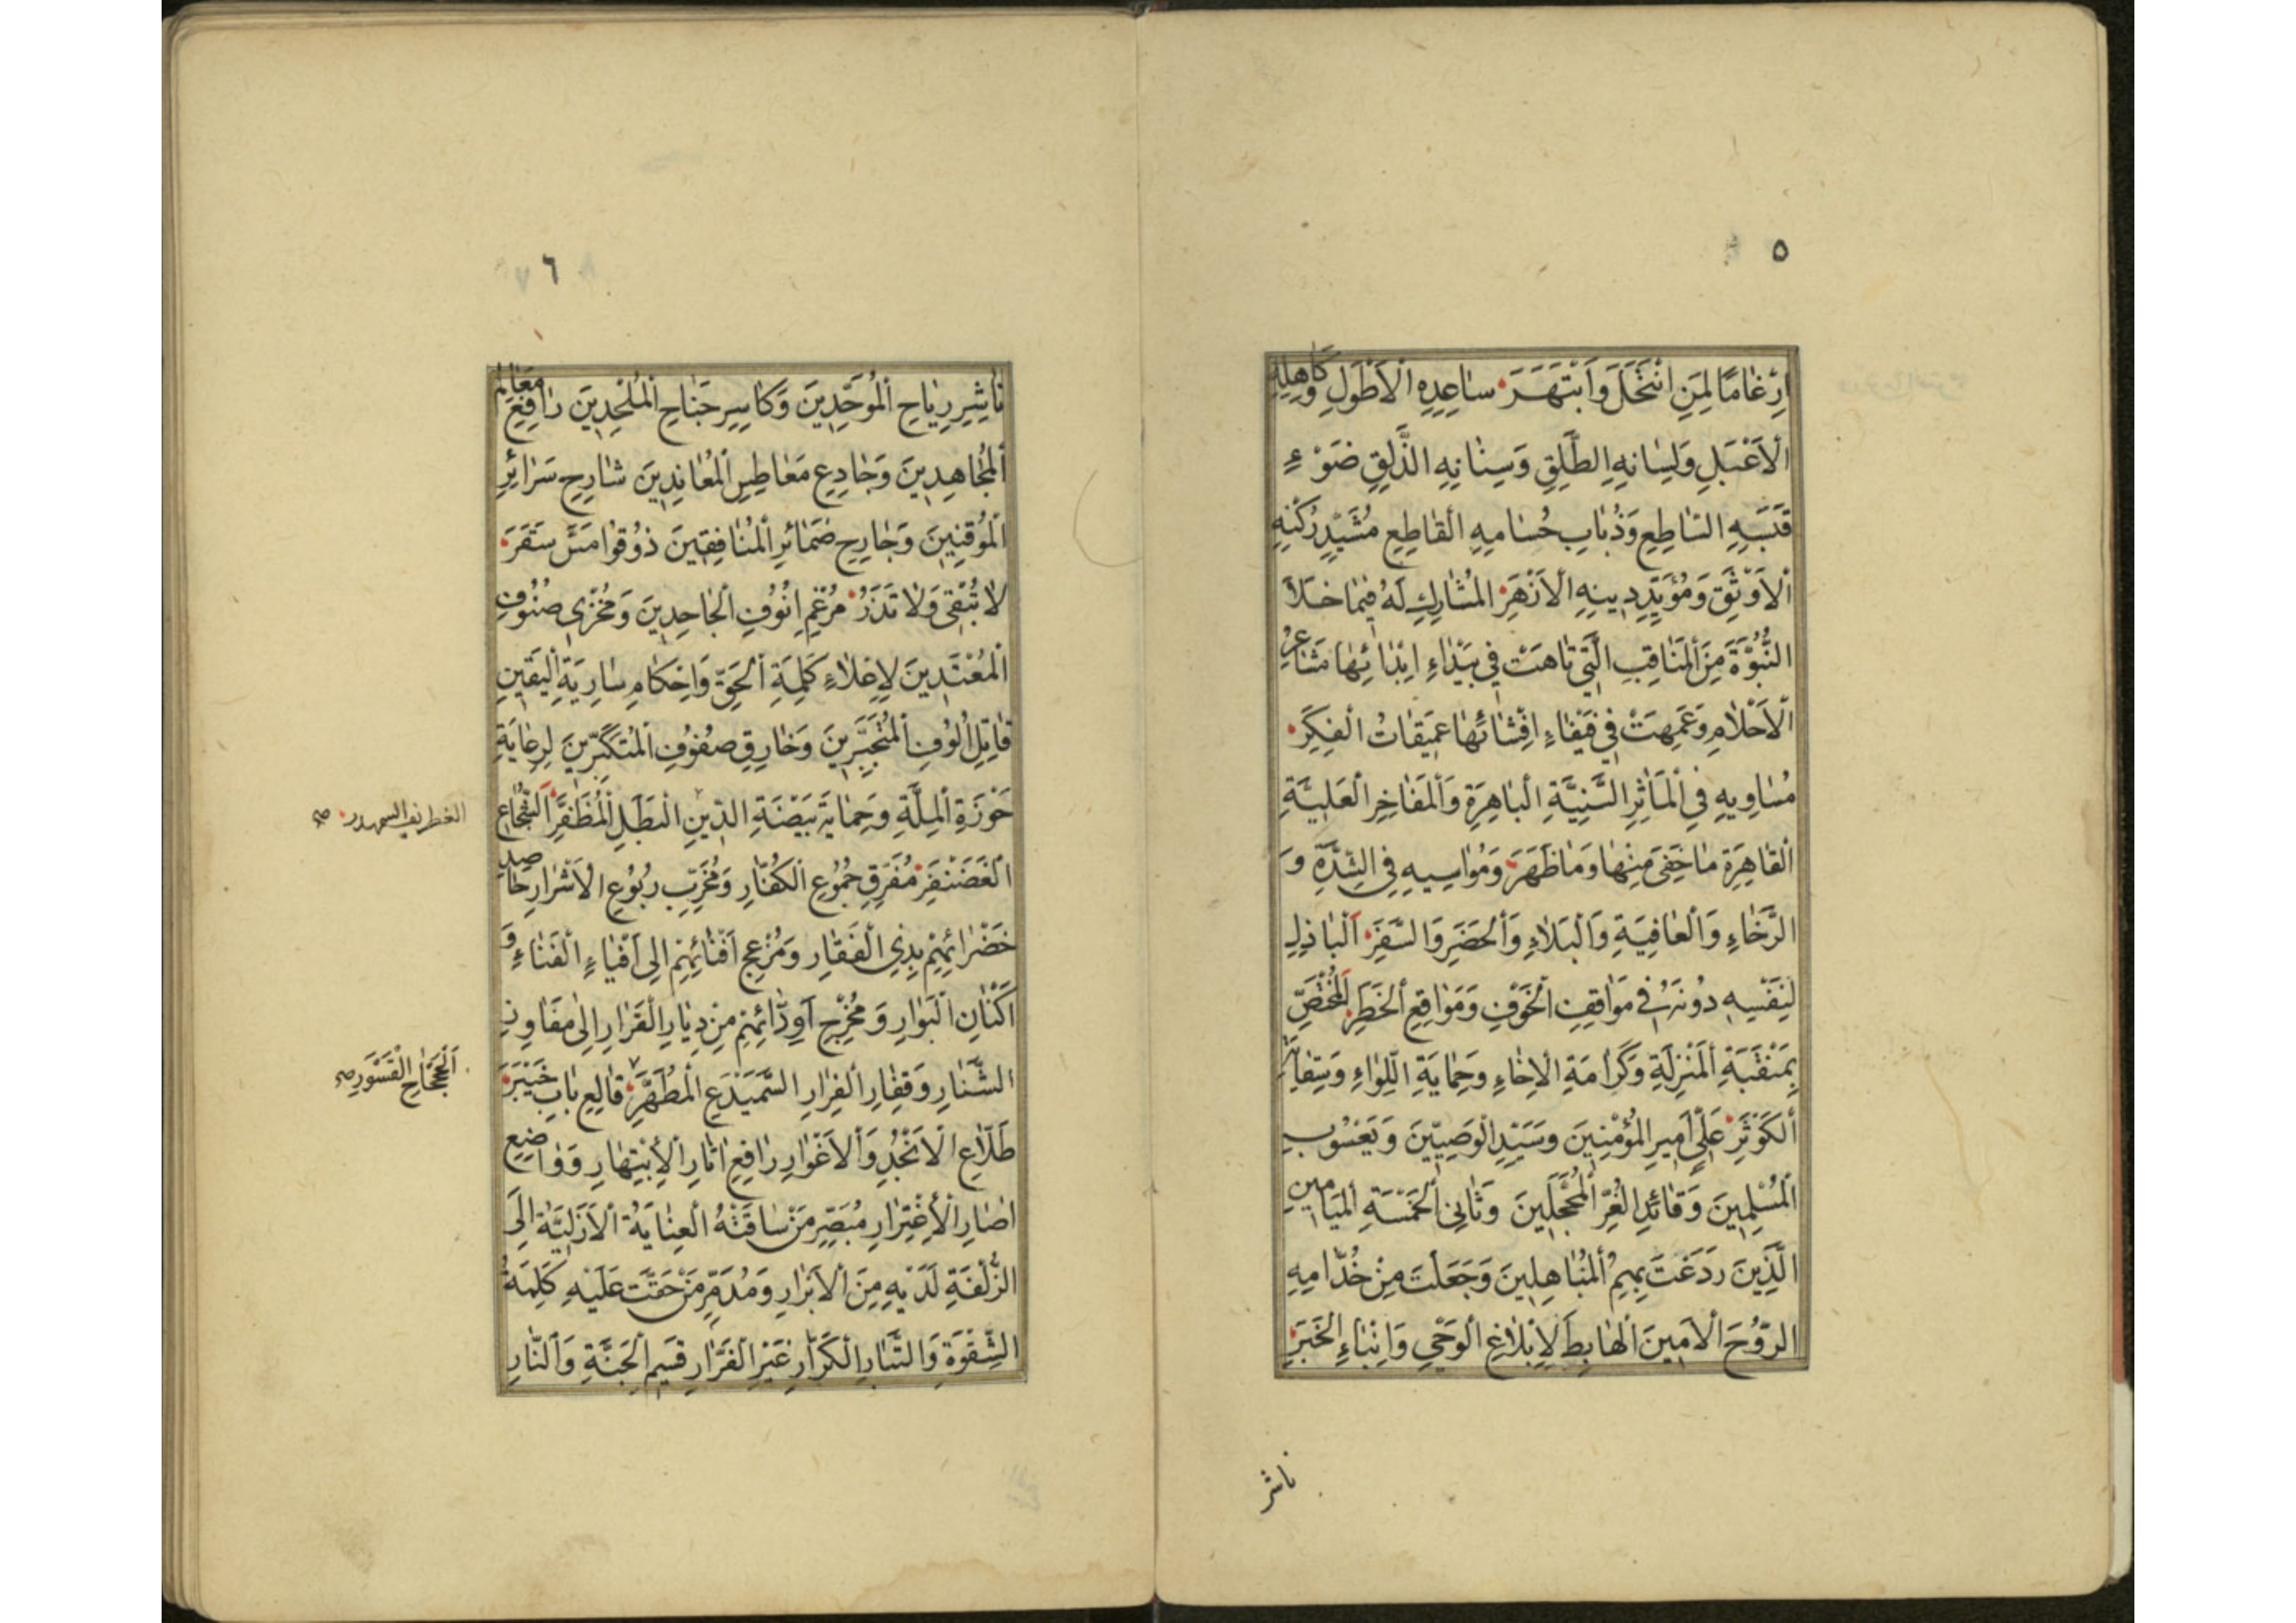 ٥
اِرْغامًا لِمَنِ انْتَحَلَ وَابْتَهَرَ ساعِدِهِ الْاَطْوَلِ وَكاهِلِهِ
الْاَعْبَلِ وَلِسانِهِ الطَّلِقِ وَسِنانِهِ الذَّلِقِ ضَوْءِ
قَبَسِهِ السّاطِعِ وَذُبابِ حُسامِهِ الْقاطِعِ مُشَيِّدِ رُكْنِهِ
الْاَوْثَقِ وَمُؤَيِّدِ دينِهِ الْاَزْهَرِ الْمُشارِكِ لَهُ فيما خَلَا
النُّبُوَّةَ مِنَ الْمَناقِبِ الَّتي تاهَتْ في بَيْداءِ اِبْدائِها مَشاعِرُ
الْاَحْلامِ وَعَمِهَتْ في فَيْفاءِ اِفْشائِها عَميقاتُ الْفِكَرِ
مُساويهِ فِي الْمَآثِرِ السَّنِيَّةِ الْباهِرَةِ وَالْمَفاخِرِ الْعَلِيَّةِ
الْقاهِرَةِ ما خَفِيَ مِنْها وَما ظَهَرَ وَمُواسيهِ فِي الشِّدَّةِ وَ
الرَّخاءِ وَالْعافِيَةِ وَالْبَلاءِ وَالْحَضَرِ وَالسَّفَرِ اَلْباذِلِ
لِنَفْسِهِ دُونَهُ في مَواقِفِ الْخَوْفِ وَمَواقِعِ الْخَطَرِ الْمُخْتَصِّ
بِمَنْقَبَةِ الْمَنْزِلَةِ وَكَرامَةِ الْاِخاءِ وَحِمايَةِ اللِّواءِ وَسِقايَةِ
الْكَوْثَرِ عَلِيٍّ اَميرِ الْمُؤْمِنينَ وَسَيِّدِ الْوَصِيّينَ وَيَعْسُوبِ
الْمُسْلِمينَ وَقائِدِ الْغُرِّ الْمُحَجَّلينَ وَثانِي الْخَمْسَةِ الْمَيامينِ
الَّذينَ رَدَعْتَ بِهِمُ الْمُباهِلينَ وَجَعَلْتَ مِنْ خُدّامِهِ
الرُّوحَ الْاَمينَ الْهابِطَ لِاِبْلاغِ الْوَحْيِ وَاِنْباءِ الْخَبَرِ
ناشر
٦
ناشِرِ رِياحِ الْمُوَحِّدينَ وَكاسِرِ جَناحِ الْمُلْحِدينَ رافِعِ مَعالِمِ
الْمُجاهِدينَ وَجادِعِ مَعاطِسِ الْمُعانِدينَ شارِحِ سَرائِرِ
الْمُوقِنينَ وَجارِحِ ضَمائِرِ الْمُنافِقينَ ذُوقُوا مَسَّ سَقَرَ
لا تُبْقي وَلا تَذَرُ مُرْغِمِ اُنُوفِ الْجاحِدينَ وَمُخْزي صُنُوفِ
الْمُعْتَدينَ لِاِعْلاءِ كَلِمَةِ الْحَقِّ وَاِحْكامِ سارِيَةِ الْيَقينِ
قاتِلِ اُلُوفِ الْمُتَجَبِّرينَ وَخارِقِ صُفُوفِ الْمُتَكَبِّرينَ لِرِعايَةِ
حَوْزَةِ الْمِلَّةِ وَحِمايَةِ بَيْضَةِ الدّينِ الْبَطَلِ الْمُظَفَّرِ اَلشُّجاعِ
الغطريف السمهدر صح
الْغَضَنْفَرِ مُفَرِّقِ جُمُوعِ الْكُفّارِ وَمُخَرِّبِ رُبُوعِ الْاَشْرارِ حاصِدِ
خَضْرائِهِمْ بِذِي الْفَقارِ وَمُزْعِجِ اَفْنائِهِمْ اِلى اَفْياءِ الْفَناءِ وَ
اَكْنانِ الْبَوارِ وَمُخْرِجِ اَوِدّائِهِمْ مِنْ دِيارِ الْقَرارِ اِلى مَفاوِزِ
الشَّنارِ وَقِفارِ الْفِرارِ السَّمَيْدَعِ الْمُطَهَّرِ قالِعِ بابِ خَيْبَرَ
اَلْجَحْجاحِ الْقَسْوَرِ صح
طَلّاعِ الْاَنْجُدِ وَالْاَغْوارِ رافِعِ آثارِ الْاِبْتِهارِ وَواضِعِ
آصارِ الْاِغْتِرارِ مُبَصِّرِ مَنْ ساقَتْهُ الْعِنايَةُ الْاَزَلِيَّةُ اِلَى
الزُّلْفَةِ لَدَيْهِ مِنَ الْاَبْرارِ وَمُدَمِّرِ مَنْ حَقَّتْ عَلَيْهِ كَلِمَةُ
الشِّقْوَةِ وَالتَّبارِ الْكَرّارِ غَيْرِ الْفَرّارِ قَسيمِ الْجَنَّةِ وَالنّارِ